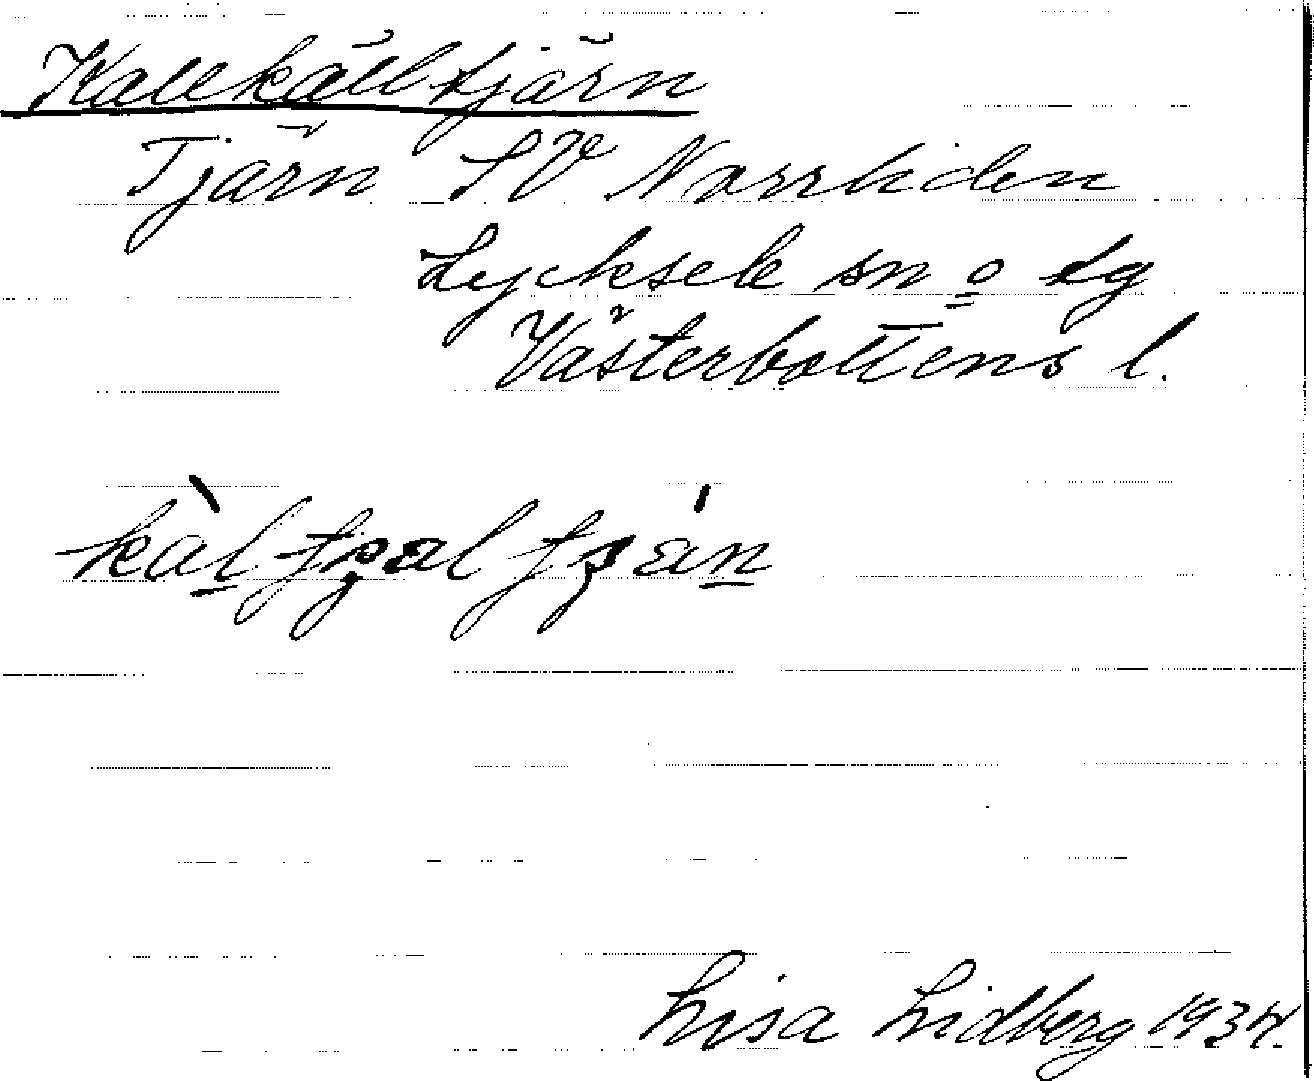 Kallkälltjärn
Tjärn SV Norrliden
Lycksele sn o tg
Västerbottens l.
Lisa Lidberg 1934.